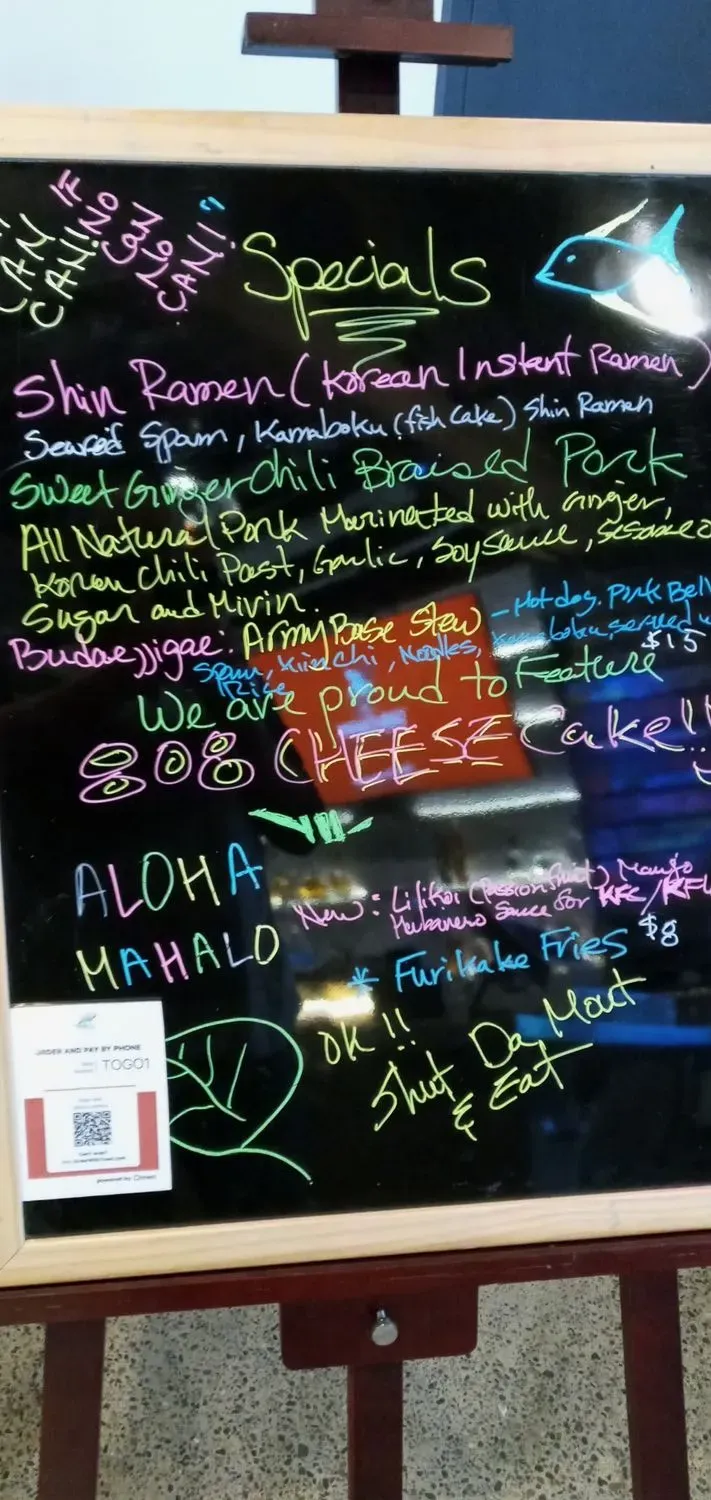 CAN
CAN!
IF
NO
CAN!"
Specials
Shin Ramen (Korean Instant Ramen)
Seared Spam, Kamaboku (fish Cake) Shin Ramen
Sweet Ginger Chili Braised Pork
All Natural Pork Marinated with Ginger,
Korean Chili Past, Garlic, Soy Sauce, Sesame O
Sugar and Mirin.
Budaejjigae: Army Base Stew - Hot dog. Pork Bell
Spam, Kimchi, Noodles, Kamaboku, served w
Rice $15
We are proud to Feature
808 CHEESE Cake!!
ALOHA
MAHALO
New: Lilikoi (Passion Fruit) Mango
Habanero Sauce for KFC/KFC
* Furikake Fries $8
OK!!
Shut Da Mout
& Eat
ORDER AND PAY BY PHONE
TOGO1
powered by